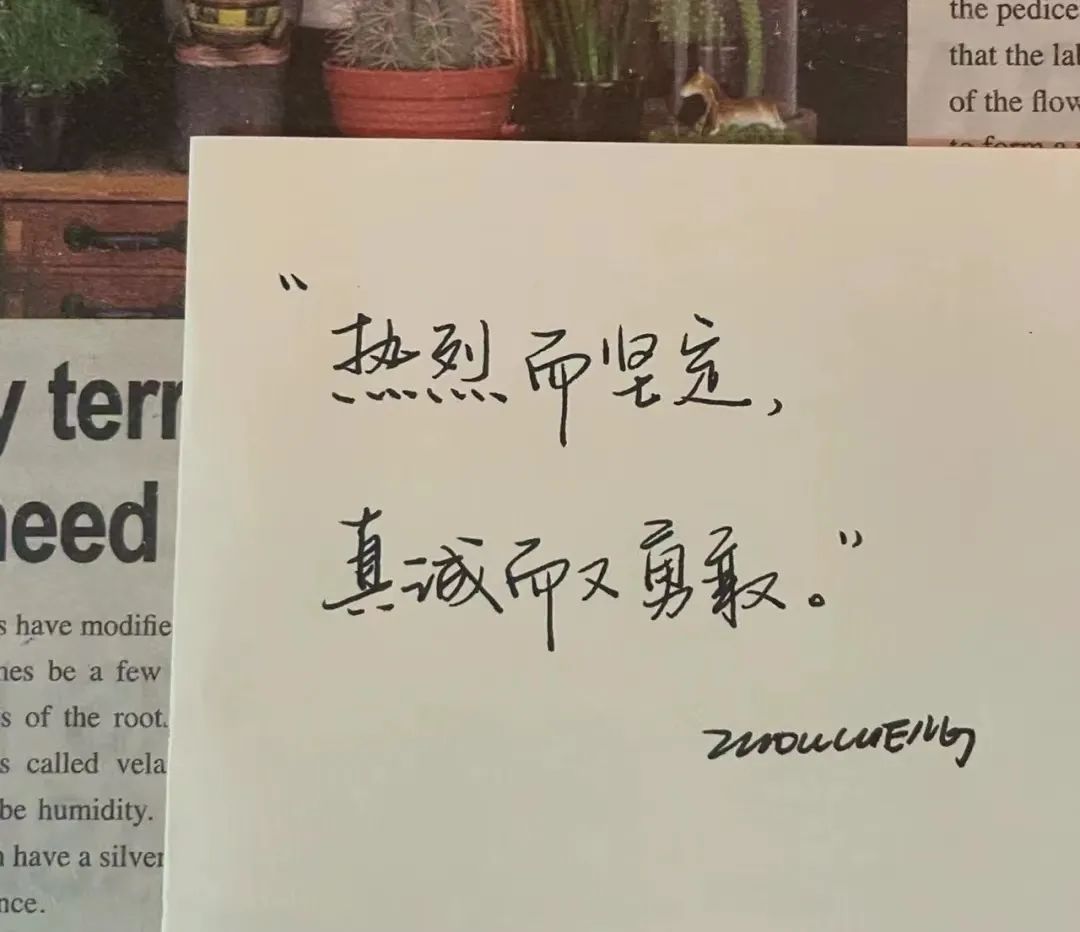 the pedice
that the lal
of the flow
"热烈而坚定,
真诚而又勇敢。"
y terr
need
s have modifie
nes be a few
s of the root.
s called vela
be humidity.
n have a silver
nce.